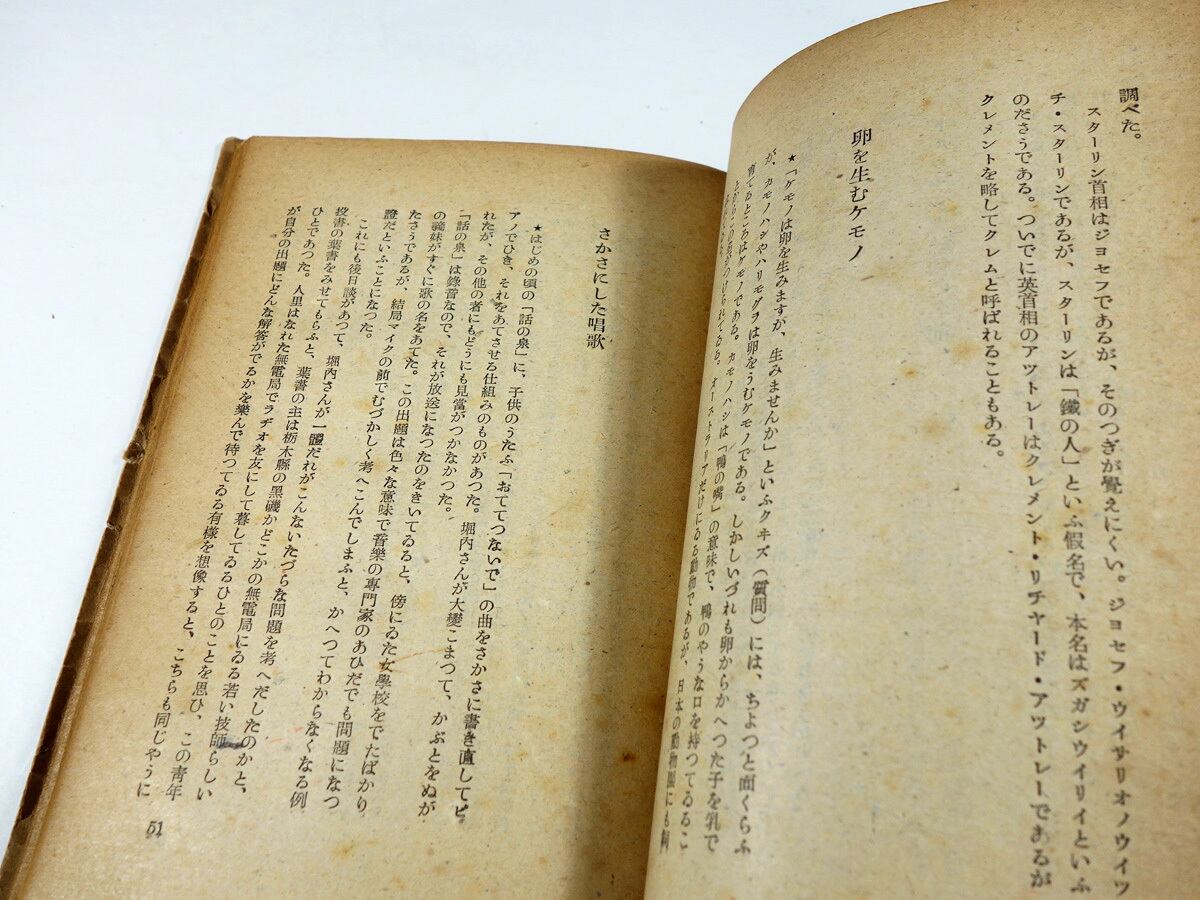 調べた。
スターリン首相はジヨセフであるが、そのつぎが覺えにくい。ジヨセフ・ウイサリオノウイツ
チ・スターリンであるが、スターリンは「鐵の人」といふ假名で、本名はズガシウイリイといふ
のださうである。ついでに英首相のアツトレーはクレメント・リチヤード・アツトレーであるが
クレメントを略してクレムと呼ばれることもある。
卵を生むケモノ
★「ケモノは卵を生みますが、生みませんか」といふクヰズ(質問)には、ちよつと面くらふ
が、カモノハシやハリモグラは卵をうむケモノである。しかしいづれも卵からかへつた子を乳で
育てるところはケモノである。カモノハシは「鴨の嘴」の意味で、鴨のやうな口を持つてゐるこ
とからこの名がつけられてゐる。オーストラリアだけにゐる動物であるが、日本の動物園にも飼
さかさにした唱歌
★はじめの頃の「話の泉」に、子供のうたふ「おててつないで」の曲をさかさに書き直してピ
アノでひき、それをあてさせる仕組みのものがあつた。堀內さんが大變こまつて、かぶとをぬが
れたが、その他の者にもどうにも見當がつかなかつた。
「話の泉」は錄音なので、それが放送になつたのをきいてゐると、傍にゐた女學校をでたばかり
の義妹がすぐに歌の名をあてた。この出題は色々な意味で音樂の專門家のあひだでも問題になつ
たさうであるが、結局マイクの前でむづかしく考へこんでしまふと、かへつてわからなくなる例
證だといふことになつた。
これにも後日談があつて、堀內さんが一體だれがこんないたづらな問題を考へだしたのかと、
投書の葉書をみせてもらふと、葉書の主は栃木縣の黑磯かどこかの無電局にゐる若い技師らしい
ひとであつた。人里はなれた無電局でラヂオを友にして暮してゐるひとのことを思ひ、この靑年
が自分の出題にどんな解答がでるかを樂んで待つてゐる有樣を想像すると、こちらも同じやうに
51